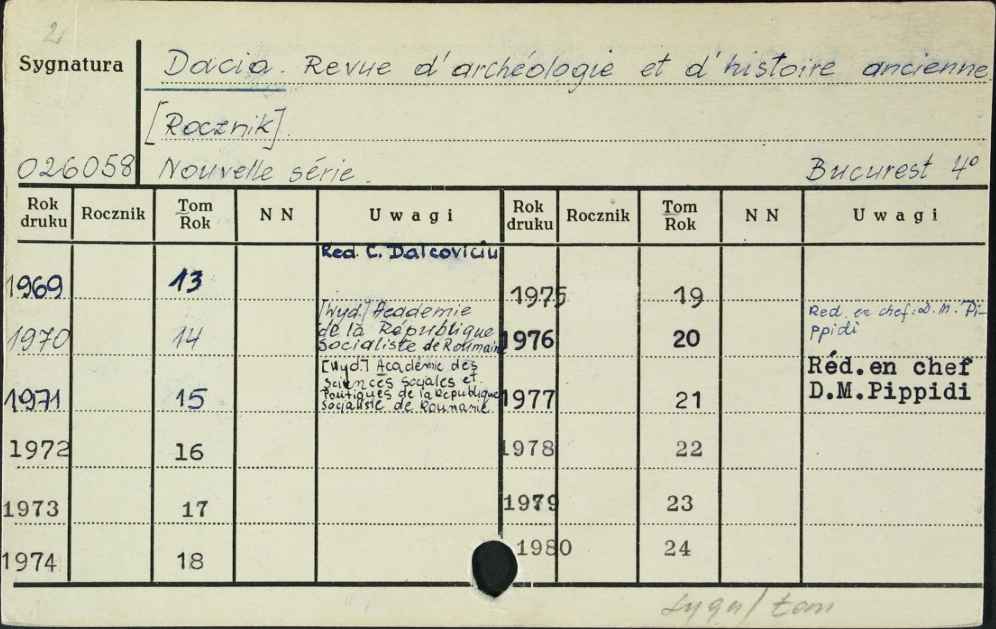 2
Sygnatura
Dacia. Revue d'archéologie et d'histoire ancienne
[Rocznik].
026058
Nouvelle série.
Bucurest 4°
Rok druku Rocznik Tom Rok NN Uwagi Rok druku Rocznik Tom Rok NN Uwagi
Red. C. Dalcoviciu
1969 13
1975 19
[Wyd.] Académie
de la République
Socialiste de Roumaine
1970 14
1976 20
Red. en chef: D. M. Pi-
ppidi
[Wyd.] Académie des
Sciences Sociales et
Politiques de la République
Socialiste de Roumanie
1971 15
1977 21
Réd. en chef
D.M.Pippidi
1972 16
1978 22
1973 17
1979 23
1974 18
1980 24